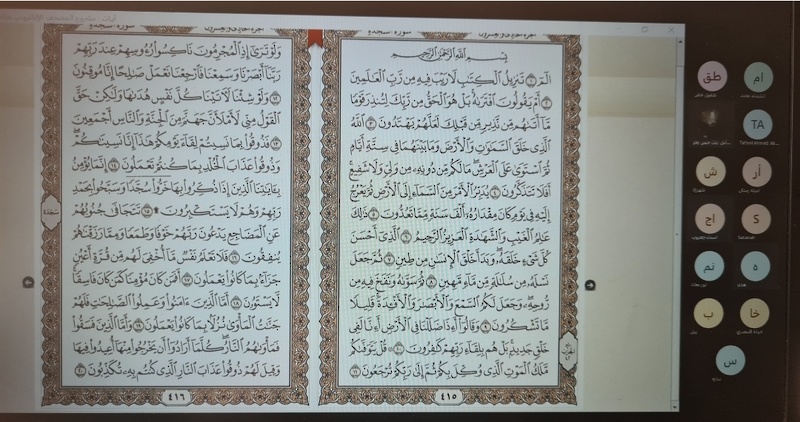 سورة السجدة
بِسْمِ اللَّهِ الرَّحْمَٰنِ الرَّحِيمِ
الٓمٓ ١ تَنزِيلُ الْكِتَٰبِ لَا رَيْبَ فِيهِ مِن رَّبِّ الْعَٰلَمِينَ
٢ أَمْ يَقُولُونَ افْتَرَىٰهُ بَلْ هُوَ الْحَقُّ مِن رَّبِّكَ لِتُنذِرَ قَوْمًا
مَّآ أَتَىٰهُم مِّن نَّذِيرٍ مِّن قَبْلِكَ لَعَلَّهُمْ يَهْتَدُونَ ٣ اللَّهُ
الَّذِي خَلَقَ السَّمَٰوَٰتِ وَالْأَرْضَ وَمَا بَيْنَهُمَا فِي سِتَّةِ أَيَّامٍ
ثُمَّ اسْتَوَىٰ عَلَى الْعَرْشِ مَا لَكُم مِّن دُونِهِ مِن وَلِيٍّ وَلَا شَفِيعٍ
أَفَلَا تَتَذَكَّرُونَ ٤ يُدَبِّرُ الْأَمْرَ مِنَ السَّمَآءِ إِلَى الْأَرْضِ ثُمَّ يَعْرُجُ
إِلَيْهِ فِي يَوْمٍ كَانَ مِقْدَارُهُ أَلْفَ سَنَةٍ مِّمَّا تَعُدُّونَ ٥ ذَٰلِكَ
عَٰلِمُ الْغَيْبِ وَالشَّهَٰدَةِ الْعَزِيزُ الرَّحِيمُ ٦ الَّذِي أَحْسَنَ
كُلَّ شَيْءٍ خَلَقَهُ وَبَدَأَ خَلْقَ الْإِنسَٰنِ مِن طِينٍ ٧ ثُمَّ جَعَلَ
نَسْلَهُ مِن سُلَٰلَةٍ مِّن مَّآءٍ مَّهِينٍ ٨ ثُمَّ سَوَّىٰهُ وَنَفَخَ فِيهِ مِن
رُّوحِهِ وَجَعَلَ لَكُمُ السَّمْعَ وَالْأَبْصَٰرَ وَالْأَفْـِٔدَةَ قَلِيلًا
مَّا تَشْكُرُونَ ٩ وَقَالُوٓا أَءِذَا ضَلَلْنَا فِي الْأَرْضِ أَءِنَّا لَفِي
خَلْقٍ جَدِيدٍ بَلْ هُم بِلِقَآءِ رَبِّهِمْ كَٰفِرُونَ ١٠ قُلْ يَتَوَفَّىٰكُم
مَّلَكُ الْمَوْتِ الَّذِي وُكِّلَ بِكُمْ ثُمَّ إِلَىٰ رَبِّكُمْ تُرْجَعُونَ ١١
٤١٥
وَلَوْ تَرَىٰٓ إِذِ الْمُجْرِمُونَ نَاكِسُوا رُءُوسِهِمْ عِندَ رَبِّهِمْ
رَبَّنَآ أَبْصَرْنَا وَسَمِعْنَا فَارْجِعْنَا نَعْمَلْ صَٰلِحًا إِنَّا مُوقِنُونَ
١٢ وَلَوْ شِئْنَا لَءَاتَيْنَا كُلَّ نَفْسٍ هُدَىٰهَا وَلَٰكِنْ حَقَّ
الْقَوْلُ مِنِّي لَأَمْلَأَنَّ جَهَنَّمَ مِنَ الْجِنَّةِ وَالنَّاسِ أَجْمَعِينَ
١٣ فَذُوقُوا بِمَا نَسِيتُمْ لِقَآءَ يَوْمِكُمْ هَٰذَآ إِنَّا نَسِينَٰكُمْ
وَذُوقُوا عَذَابَ الْخُلْدِ بِمَا كُنتُمْ تَعْمَلُونَ ١٤ إِنَّمَا يُؤْمِنُ
بِـَٔايَٰتِنَا الَّذِينَ إِذَا ذُكِّرُوا بِهَا خَرُّوا سُجَّدًا وَسَبَّحُوا بِحَمْدِ
رَبِّهِمْ وَهُمْ لَا يَسْتَكْبِرُونَ ۩ ١٥ تَتَجَافَىٰ جُنُوبُهُمْ
عَنِ الْمَضَاجِعِ يَدْعُونَ رَبَّهُمْ خَوْفًا وَطَمَعًا وَمِمَّا رَزَقْنَٰهُمْ
يُنفِقُونَ ١٦ فَلَا تَعْلَمُ نَفْسٌ مَّآ أُخْفِيَ لَهُم مِّن قُرَّةِ أَعْيُنٍ
جَزَآءً بِمَا كَانُوا يَعْمَلُونَ ١٧ أَفَمَن كَانَ مُؤْمِنًا كَمَن كَانَ فَاسِقًا
لَّا يَسْتَوُونَ ١٨ أَمَّا الَّذِينَ ءَامَنُوا وَعَمِلُوا الصَّٰلِحَٰتِ فَلَهُمْ
جَنَّٰتُ الْمَأْوَىٰ نُزُلًا بِمَا كَانُوا يَعْمَلُونَ ١٩ وَأَمَّا الَّذِينَ فَسَقُوا
فَمَأْوَىٰهُمُ النَّارُ كُلَّمَآ أَرَادُوٓا أَن يَخْرُجُوا مِنْهَآ أُعِيدُوا فِيهَا
وَقِيلَ لَهُمْ ذُوقُوا عَذَابَ النَّارِ الَّذِي كُنتُم بِهِ تُكَذِّبُونَ ٢٠
سَجْدَة
٤١٦
ام
طق
TA
أر
ش
S
اج
ه
نم
خا
ب
س
شهرزاد
Sabahah
هدى
سارة